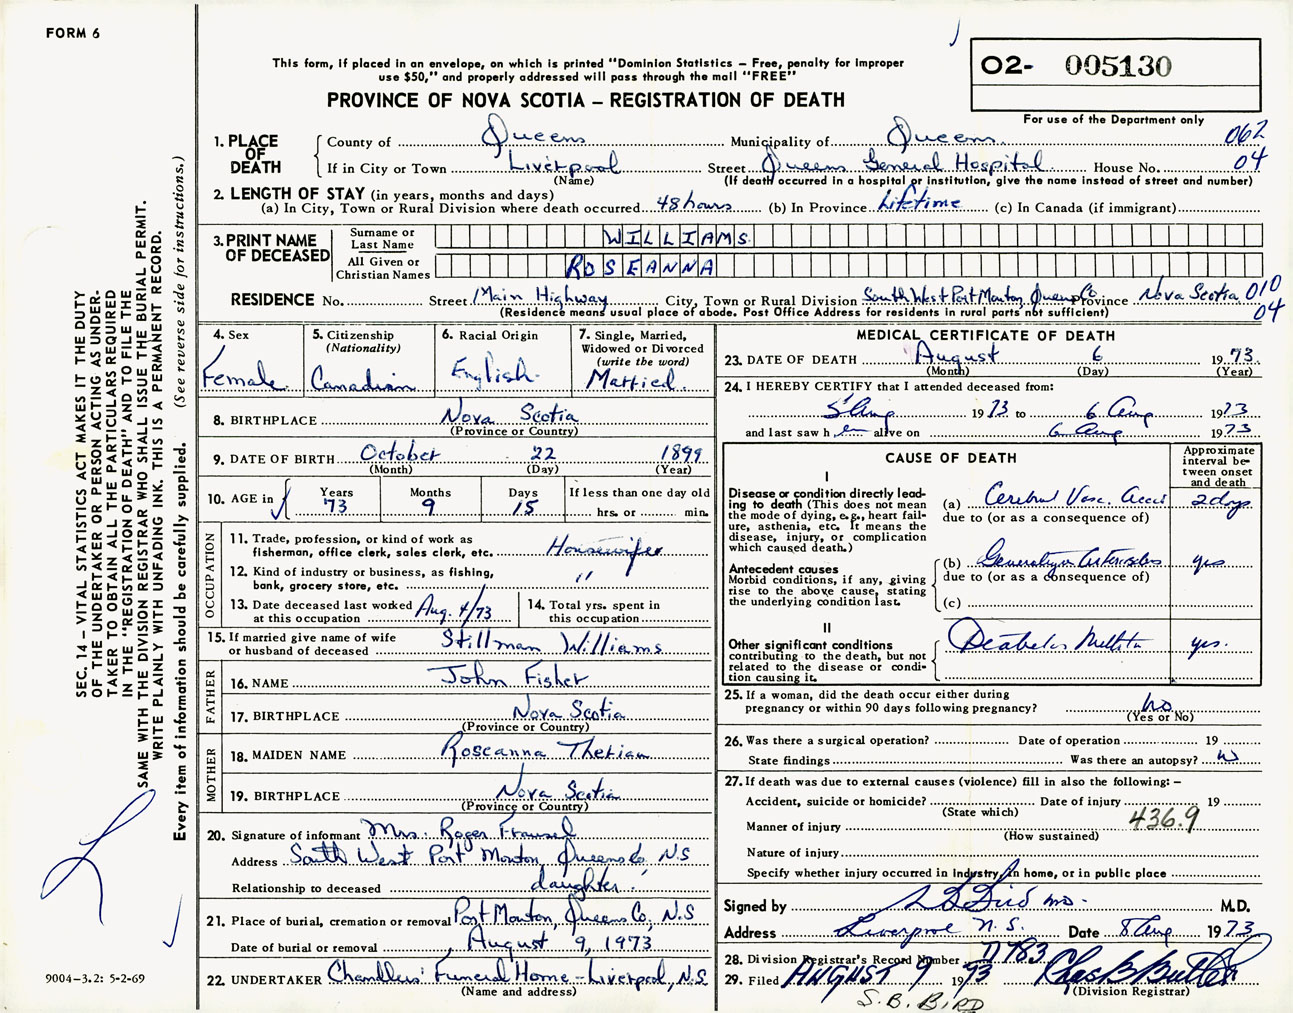 FORM 6
This form, if placed in an envelope, on which is printed "Dominion Statistics – Free, penalty for improper
use $50," and properly addressed will pass through the mail "FREE"
PROVINCE OF NOVA SCOTIA – REGISTRATION OF DEATH
O2- 005130
For use of the Department only
062
04
1. PLACE OF DEATH
County of Queens Municipality of Queens
If in City or Town Liverpool Street Queens General Hospital House No.
(Name) (If death occurred in a hospital or institution, give the name instead of street and number)
2. LENGTH OF STAY (in years, months and days)
(a) In City, Town or Rural Division where death occurred 48 hours (b) In Province Lifetime (c) In Canada (if immigrant)
3. PRINT NAME OF DECEASED
Surname or Last Name WILLIAMS
All Given or Christian Names ROSEANNA
RESIDENCE No. Street Main Highway City, Town or Rural Division South West Port Mouton, Queens Co Province Nova Scotia 010
04
(Residence means usual place of abode. Post Office Address for residents in rural parts not sufficient)
4. Sex
Female
5. Citizenship
(Nationality)
Canadian
6. Racial Origin
English
7. Single, Married,
Widowed or Divorced
(write the word)
Married
8. BIRTHPLACE Nova Scotia
(Province or Country)
9. DATE OF BIRTH October 22 1899
(Month) (Day) (Year)
10. AGE in Years 73 Months 9 Days 15 If less than one day old
hrs. or min.
OCCUPATION
11. Trade, profession, or kind of work as
fisherman, office clerk, sales clerk, etc. Housewife
12. Kind of industry or business, as fishing,
bank, grocery store, etc. "
13. Date deceased last worked
at this occupation Aug. 4/73
14. Total yrs. spent in
this occupation
15. If married give name of wife
or husband of deceased Stillman Williams
FATHER
16. NAME John Fisher
17. BIRTHPLACE Nova Scotia
(Province or Country)
MOTHER
18. MAIDEN NAME Roseanna
19. BIRTHPLACE Nova Scotia
(Province or Country)
20. Signature of informant Mrs. Roger
Address South West Port Mouton, Queens Co, N.S
Relationship to deceased daughter
21. Place of burial, cremation or removal Port Mouton, Queens Co, N.S
Date of burial or removal August 9, 1973
22. UNDERTAKER Chandlers' Funeral Home – Liverpool, N.S
(Name and address)
MEDICAL CERTIFICATE OF DEATH
23. DATE OF DEATH August 6 1973
(Month) (Day) (Year)
24. I HEREBY CERTIFY that I attended deceased from:
5 Aug 1973 to 6 Aug 1973
and last saw her alive on 6 Aug 1973
CAUSE OF DEATH
Approximate
interval be-
tween onset
and death
I
Disease or condition directly lead-
ing to death (This does not mean
the mode of dying, e.g., heart fail-
ure, asthenia, etc. It means the
disease, injury, or complication
which caused death.)
(a) Cerebral Vasc. Accid 2 days
due to (or as a consequence of)
Antecedent causes
Morbid conditions, if any, giving
rise to the above cause, stating
the underlying condition last.
(b) yrs
due to (or as a consequence of)
(c)
II
Other significant conditions
contributing to the death, but not
related to the disease or condi-
tion causing it.
Diabetes Mellitus yrs.
25. If a woman, did the death occur either during
pregnancy or within 90 days following pregnancy? No
(Yes or No)
26. Was there a surgical operation? Date of operation 19
State findings Was there an autopsy? No
27. If death was due to external causes (violence) fill in also the following: –
Accident, suicide or homicide? Date of injury 19
(State which)
436.9
Manner of injury
(How sustained)
Nature of injury
Specify whether injury occurred in Industry, in home, or in public place
Signed by S B Bird MD. M.D.
Address Liverpool N.S. Date 8 Aug 1973
28. Division Registrar's Record Number 11783
29. Filed AUGUST 9 1973 Chas B Butler
(Division Registrar)
S. B. BIRD
SEC. 14 – VITAL STATISTICS ACT MAKES IT THE DUTY
OF THE UNDERTAKER OR PERSON ACTING AS UNDER-
TAKER TO OBTAIN ALL THE PARTICULARS REQUIRED
IN THE "REGISTRATION OF DEATH" AND TO FILE THE
SAME WITH THE DIVISION REGISTRAR WHO SHALL ISSUE THE BURIAL PERMIT.
WRITE PLAINLY WITH UNFADING INK. THIS IS A PERMANENT RECORD.
Every item of Information should be carefully supplied. (See reverse side for instructions.)
9004-3.2: 5-2-69